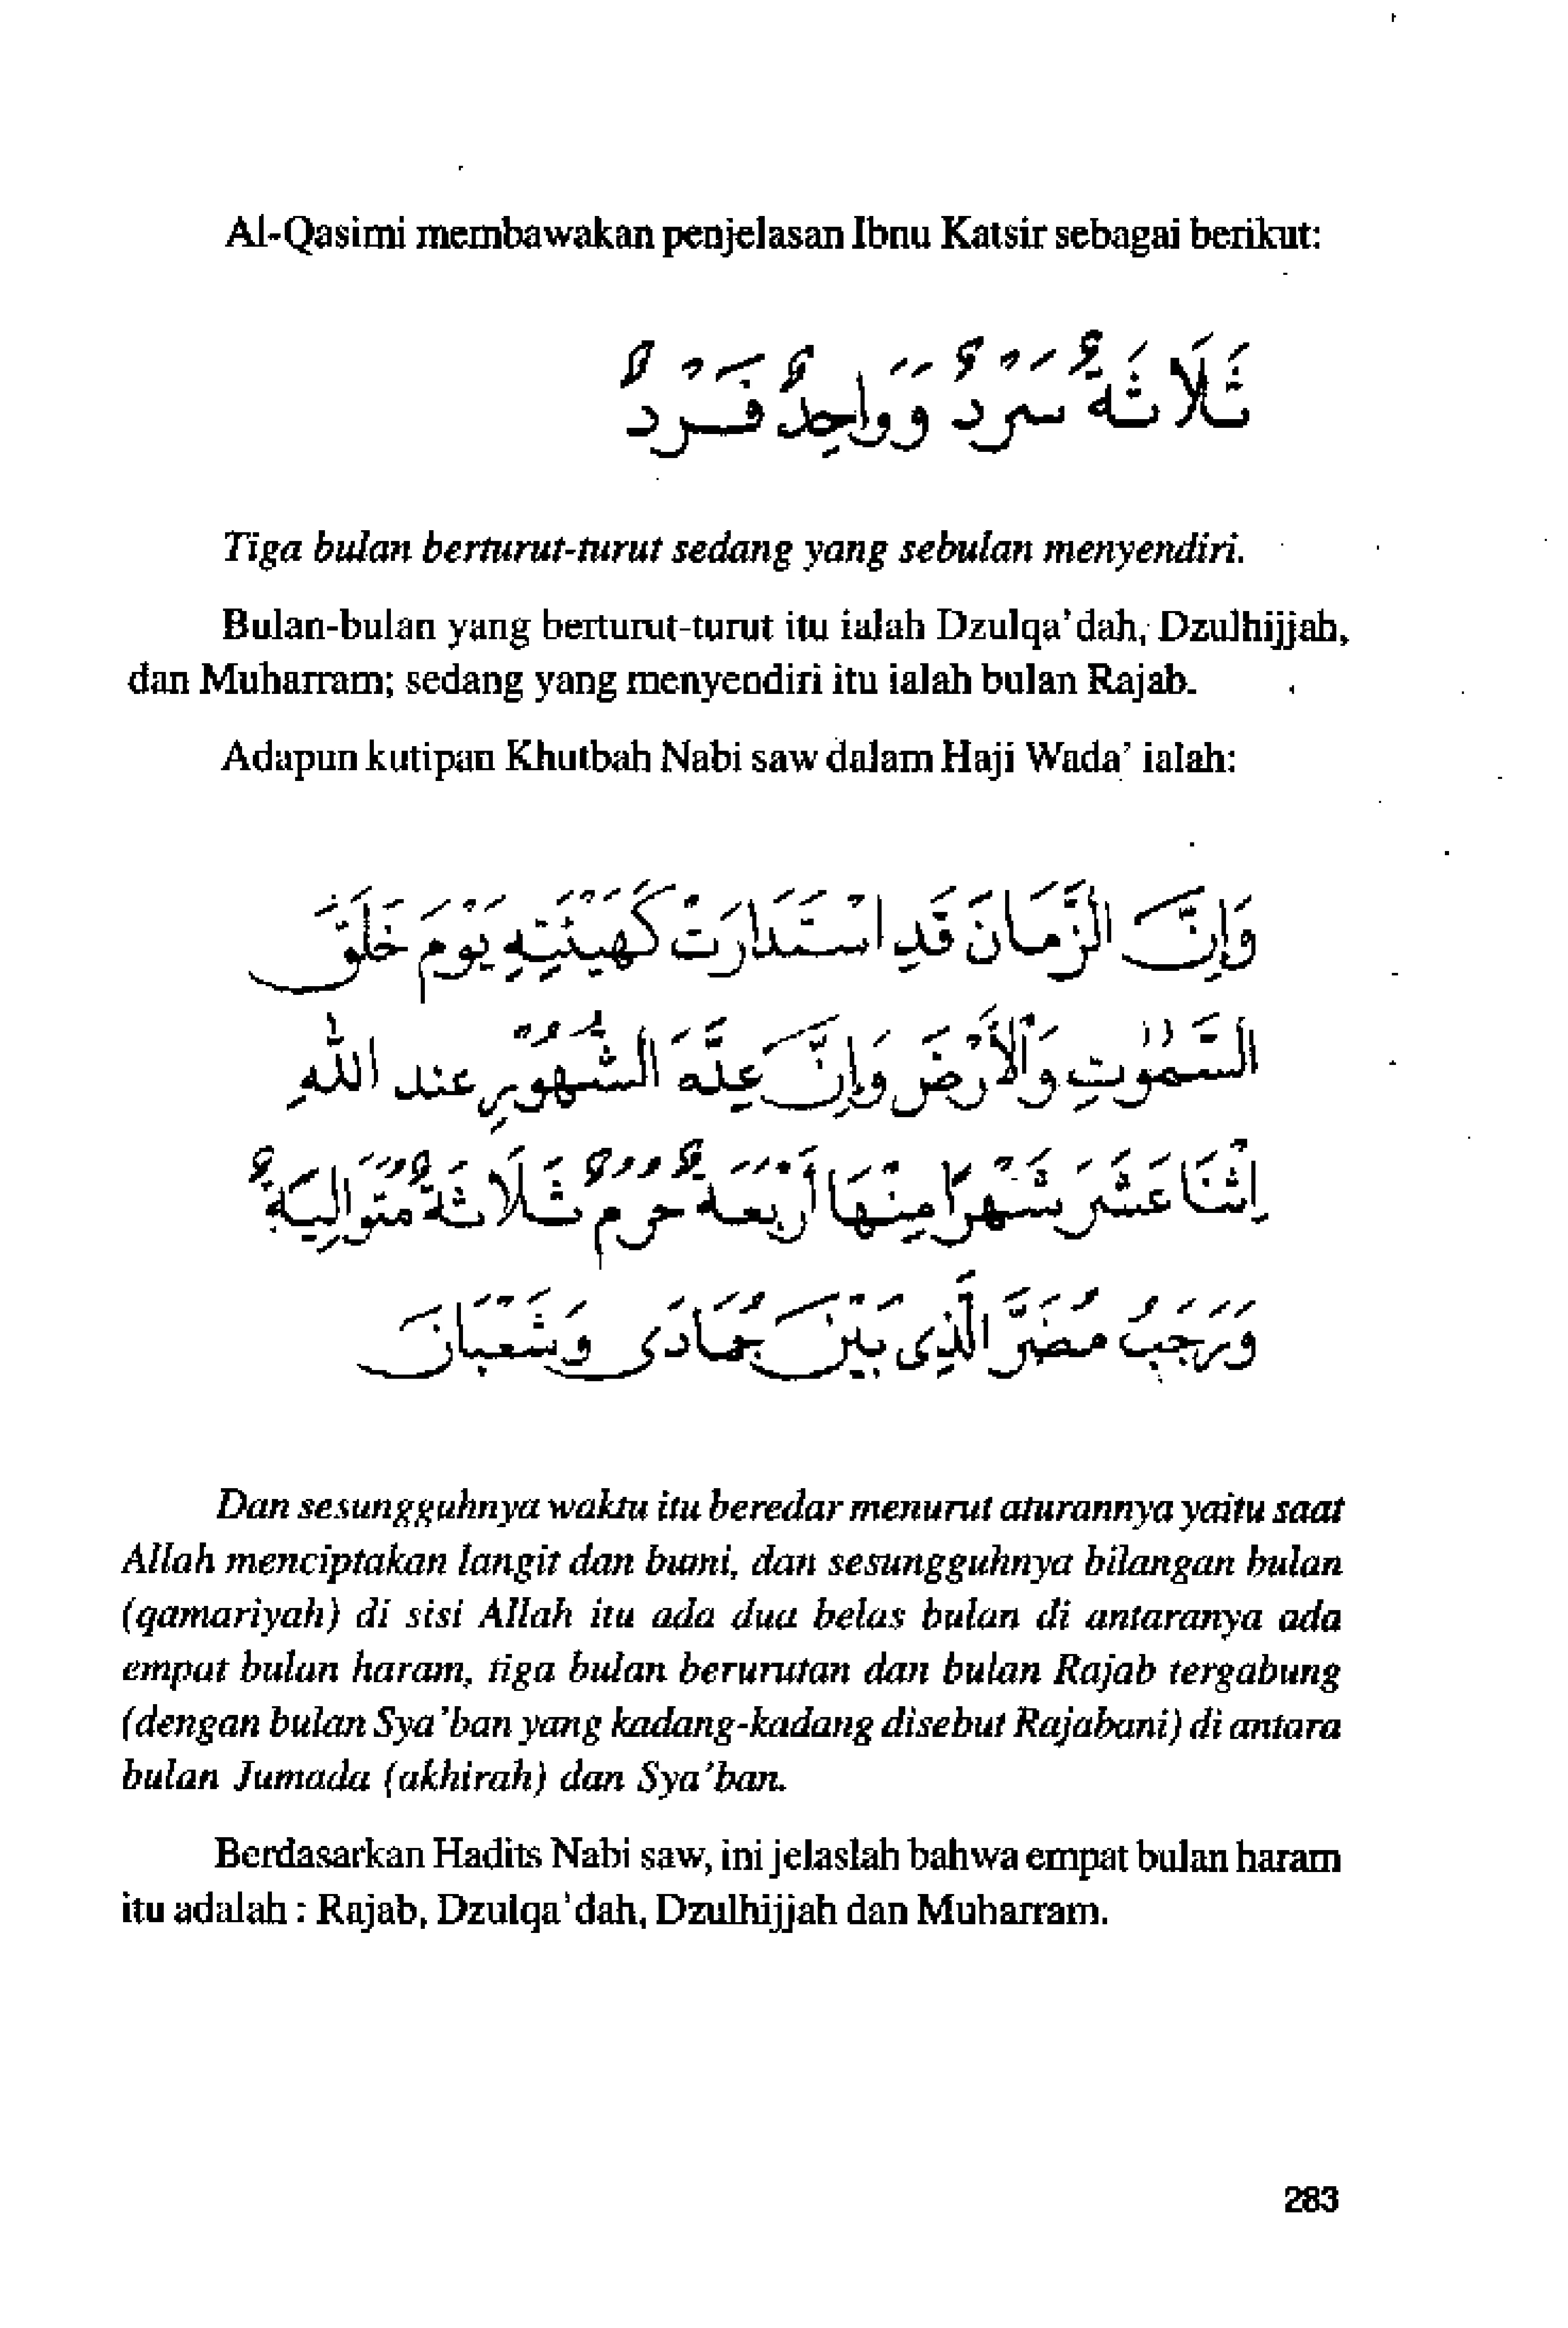 Al-Qasimi membawakan penjelasan Ibnu Katsir sebagai berikut:
ثَلَاثَةٌ سَرْدٌ وَوَاحِدٌ فَرْدٌ
Tiga bulan berturut-turut sedang yang sebulan menyendiri.
Bulan-bulan yang berturut-turut itu ialah Dzulqa'dah, Dzulhijjah,
dan Muharram; sedang yang menyendiri itu ialah bulan Rajab.
Adapun kutipan Khutbah Nabi saw dalam Haji Wada' ialah:
وَإِنَّ الزَّمَانَ قَدِ اسْتَدَارَتْ كَهَيْئَتِهِ يَوْمَ خَلَقَ
السَّمٰوٰتِ وَالْأَرْضَ وَإِنَّ عِدَّةَ الشُّهُوْرِ عند اللهِ
اِثْنَا عَشَرَ شَهْرًا مِنْهَا أَرْبَعَةٌ حُرُمٌ ثَلَاثَةٌ مُتَوَالِيَةٌ
وَرَجَبُ مُضَرَ الَّذِى بَيْنَ جُمَادَى وَشَعْبَانَ
Dan sesungguhnya waktu itu beredar menurut aturannya yaitu saat
Allah menciptakan langit dan bumi, dan sesungguhnya bilangan bulan
(qamariyah) di sisi Allah itu ada dua belas bulan di antaranya ada
empat bulan haram, tiga bulan berurutan dan bulan Rajab tergabung
(dengan bulan Sya'ban yang kadang-kadang disebut Rajabani) di antara
bulan Jumada (akhirah) dan Sya'ban.
Berdasarkan Hadits Nabi saw, ini jelaslah bahwa empat bulan haram
itu adalah : Rajab, Dzulqa'dah, Dzulhijjah dan Muharram.
283